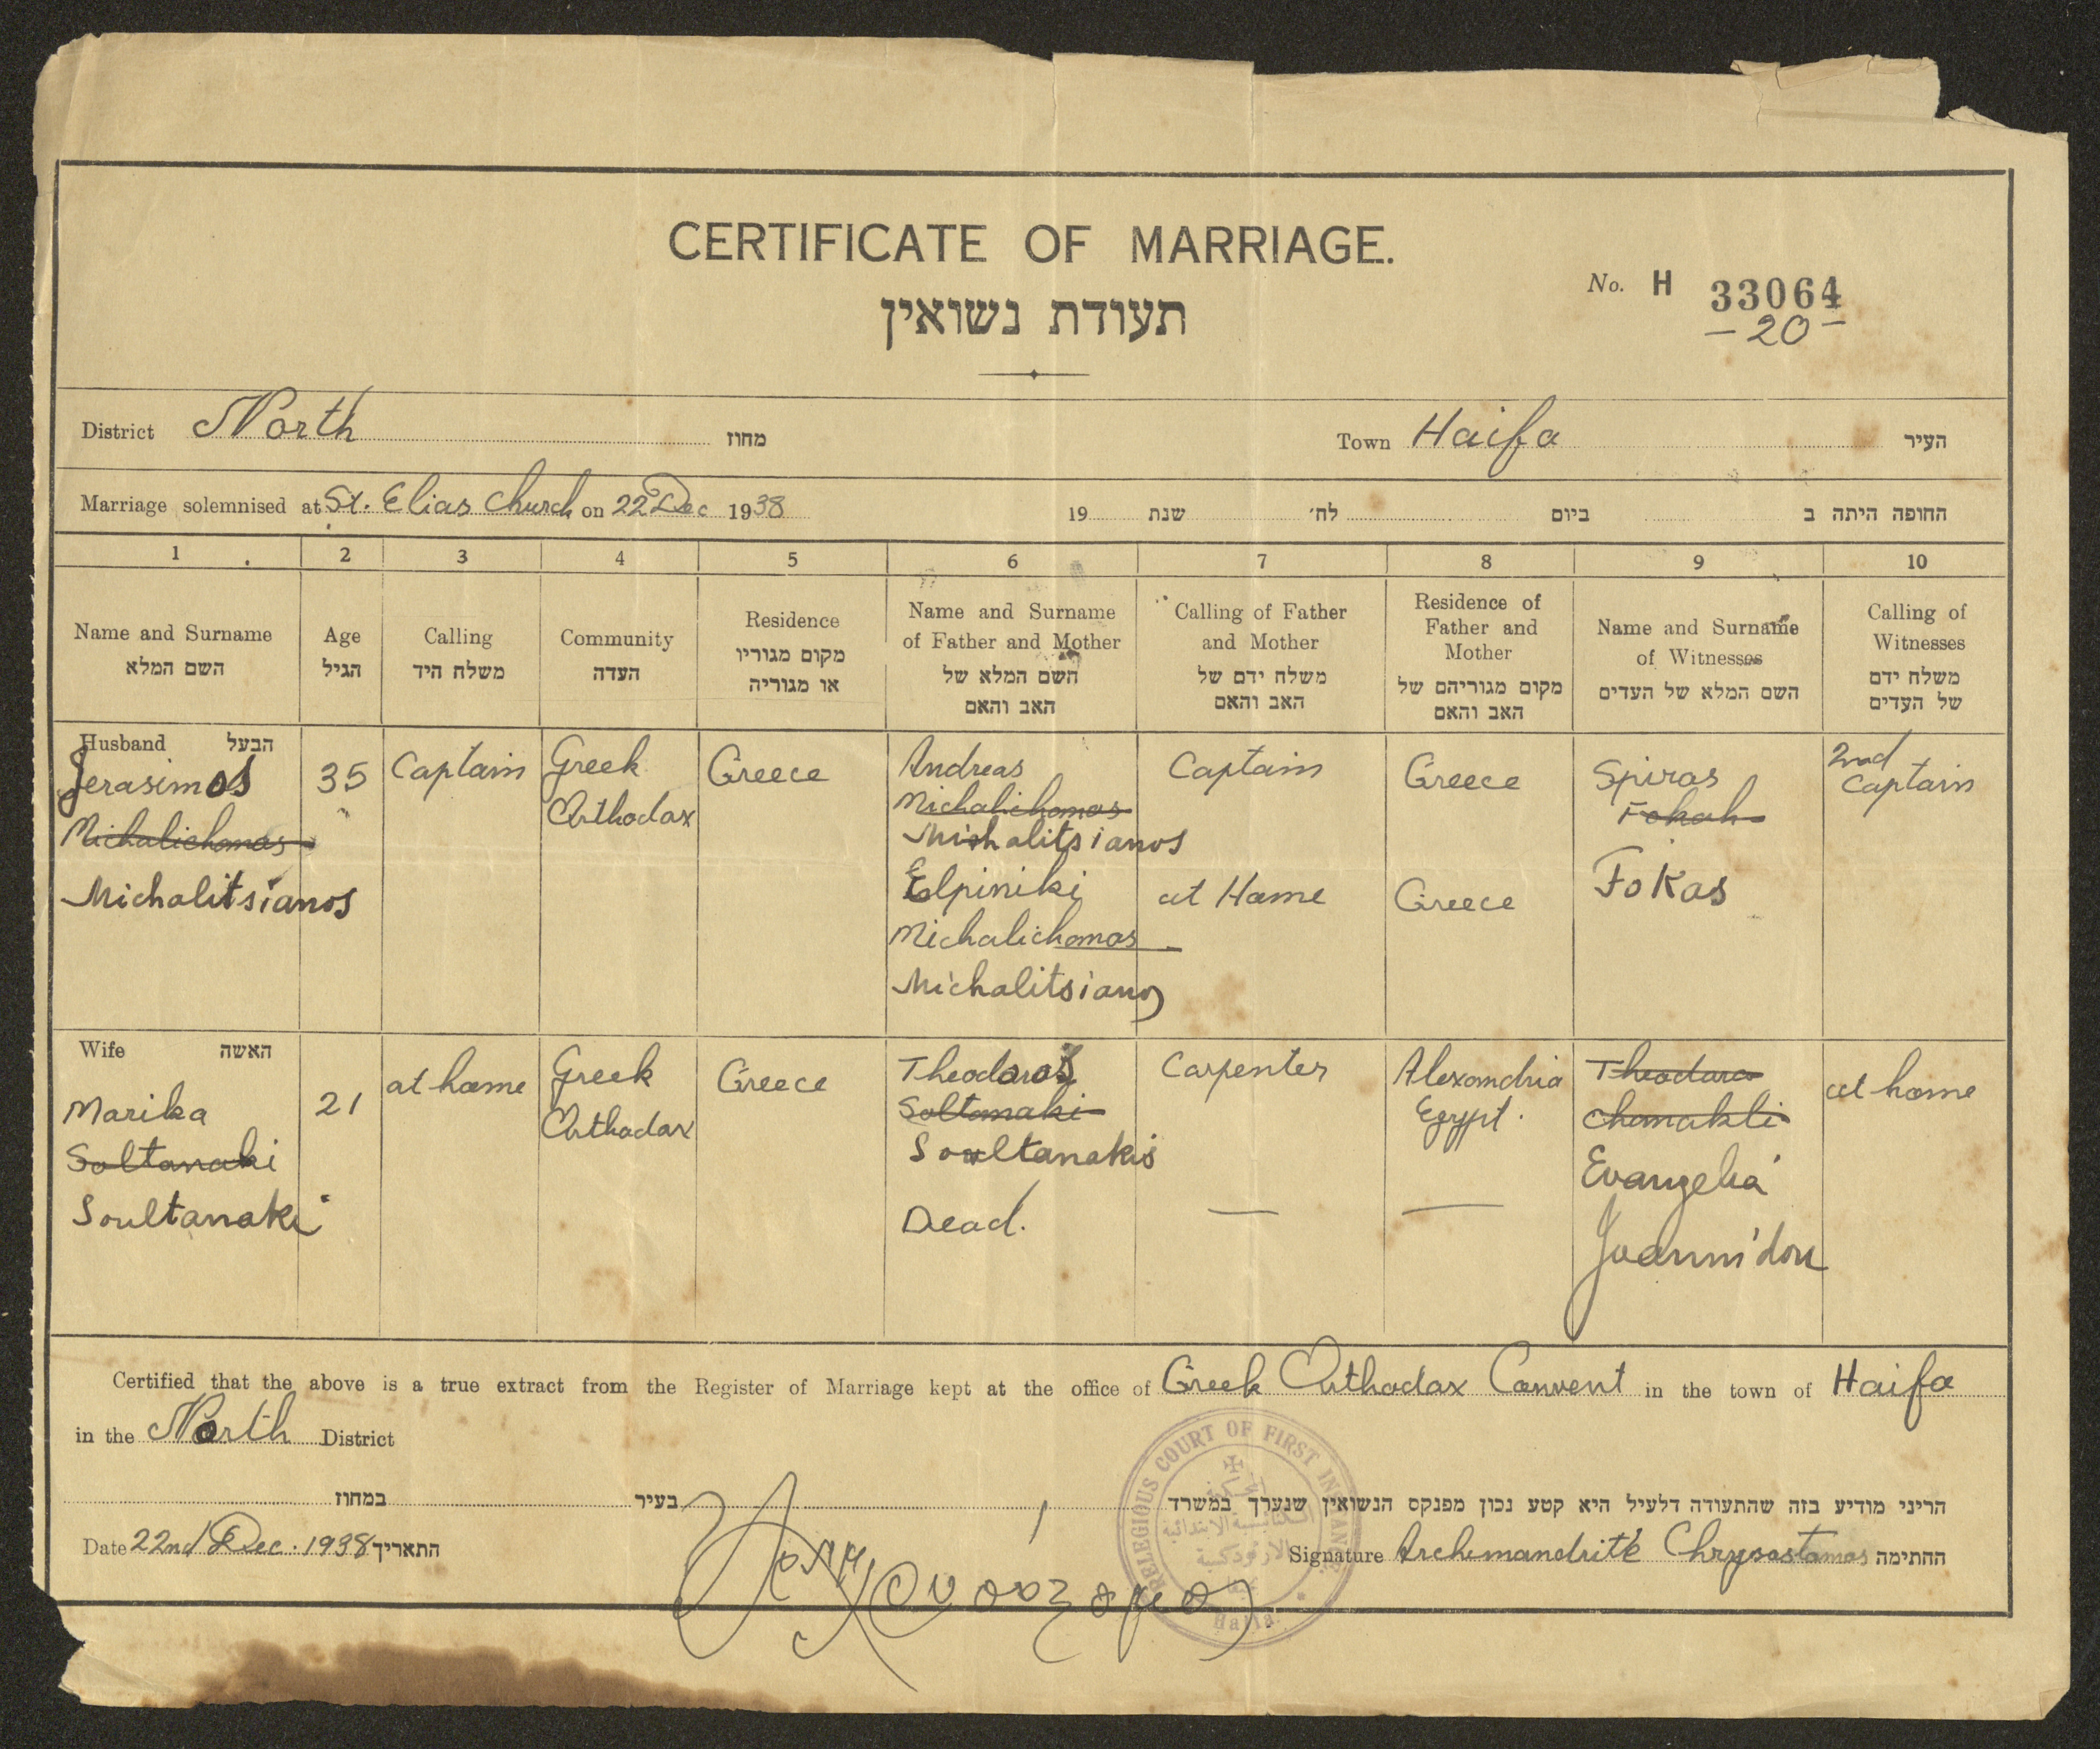 CERTIFICATE OF MARRIAGE.
תעודת נשואין
No. H 33064
— 20 —
District North מחוז
Town Haifa העיר
Marriage solemnised at St. Elias Church on 22 Dec 1938
החופה היתה ב ביום לח' שנת 19
1 2 3 4 5 6 7 8 9 10
Name and Surname
השם המלא
Age
הגיל
Calling
משלח היד
Community
העדה
Residence
מקום מגוריו
או מגוריה
Name and Surname
of Father and Mother
השם המלא של
האב והאם
Calling of Father
and Mother
משלח ידם של
האב והאם
Residence of
Father and
Mother
מקום מגוריהם של
האב והאם
Name and Surname
of Witnesses
השם המלא של העדים
Calling of
Witnesses
משלח ידם
של העדים
Husband הבעל
Jerasimos
Michalichomas
Michalitsianos
35
Captain
Greek
Orthodox
Greece
Andreas
Michalichomas
Michalitsianos
Elpiniki
Michalichomas
Michalitsianos
Captain
at Home
Greece
Greece
Spiros
Fokah
Fokas
2nd
Captain
Wife האשה
Marika
Soltanaki
Soultanaki
21
at home
Greek
Orthodox
Greece
Theodoros
Soltanaki
Soultanakis
Dead.
Carpenter
—
Alexandria
Egypt.
—
Theodora
Chomakli
Evangelia
Joannidou
at home
Certified that the above is a true extract from the Register of Marriage kept at the office of Greek Orthodox Convent in the town of Haifa
in the North District
הריני מודיע בזה שהתעודה דלעיל היא קטע נכון מפנקס הנשואין שנערך במשרד
בעיר במחוז
Date 22nd Dec. 1938 התאריך
Signature Archimandrite Chrysostomos החתימה
RELEGIOUS COURT OF FIRST INSTANCE
الكنيسية الابتدائية
الارثوذكسية
Haifa